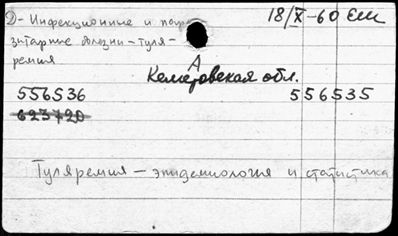 Д- Инфекционные и пара- 18/X-60 Ем
зитарные болезни - туля-
ремия
А
Кемеровская обл.
556536 556535
623720
Туляремия - эпидемиология и статистика